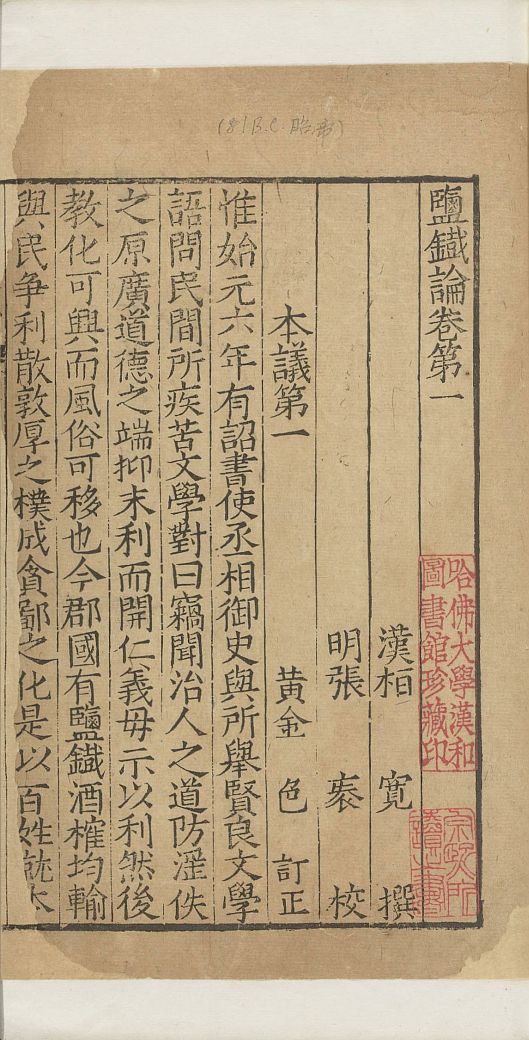 (81 B.C. 昭帝)
鹽鐵論卷第一
漢桓 寬 撰
明張 袠 校
黃金 色 訂正
本議第一
惟始元六年有詔書使丞相御史與所舉賢良文學
語問民間所疾苦文學對曰竊聞治人之道防淫佚
之原廣道德之端抑末利而開仁義毋示以利然後
教化可興而風俗可移也今郡國有鹽鐵酒榷均輸
與民争利散敦厚之樸成貪鄙之化是以百姓就本
哈佛大學漢和
圖書館珍藏印